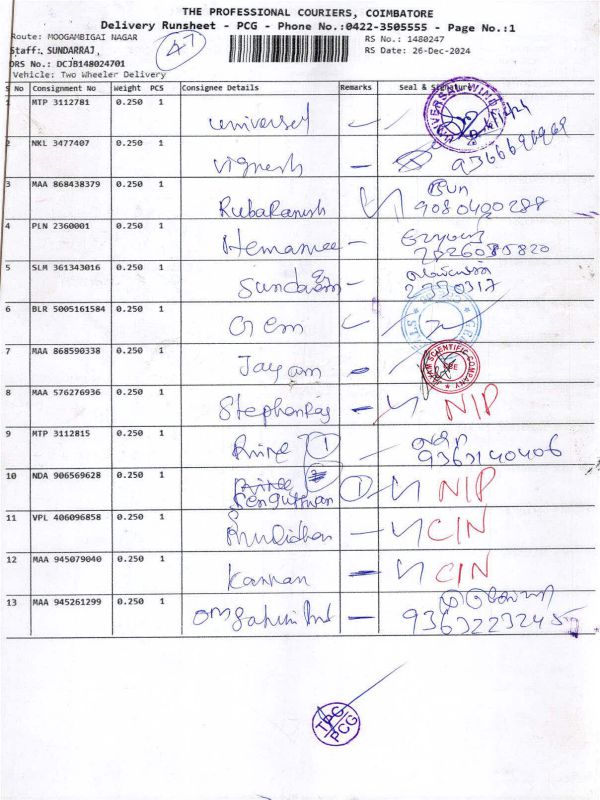 THE PROFESSIONAL COURIERS, COIMBATORE
Delivery Runsheet - PCG - Phone No.:0422-3505555 - Page No.:1
Route: MOOGAMBIGAI NAGAR
47
RS No.: 1480247
Staff:. SUNDARRAJ.
RS Date: 26-Dec-2024
DRS No.: DCJB148024701
Vehicle: Two Wheeler Delivery
S No Consignment No Weight PCS Consignee Details Remarks Seal & Signature
1 MTP 3112781 0.250 1 universal
2 NKL 3477407 0.250 1 vignesh
3 MAA 868438379 0.250 1 RubaRanish 9080400288
4 PLN 2360001 0.250 1
5 SLM 361343016 0.250 1 Sundaram 2390317
6 BLR 5005161584 0.250 1 Gem
7 MAA 868590338 0.250 1 Jayam JAYAM SCIENTIFIC COMPANY CBE
8 MAA 576276936 0.250 1 StephenRaj NIP
9 MTP 3112815 0.250 1 1 9363140406
10 NDA 906569628 0.250 1 Senguttuvan 1 NIP
11 VPL 406096858 0.250 1 CIN
12 MAA 945079040 0.250 1 Kannan CIN
13 MAA 945261299 0.250 1 9363223245
TPC
PCG